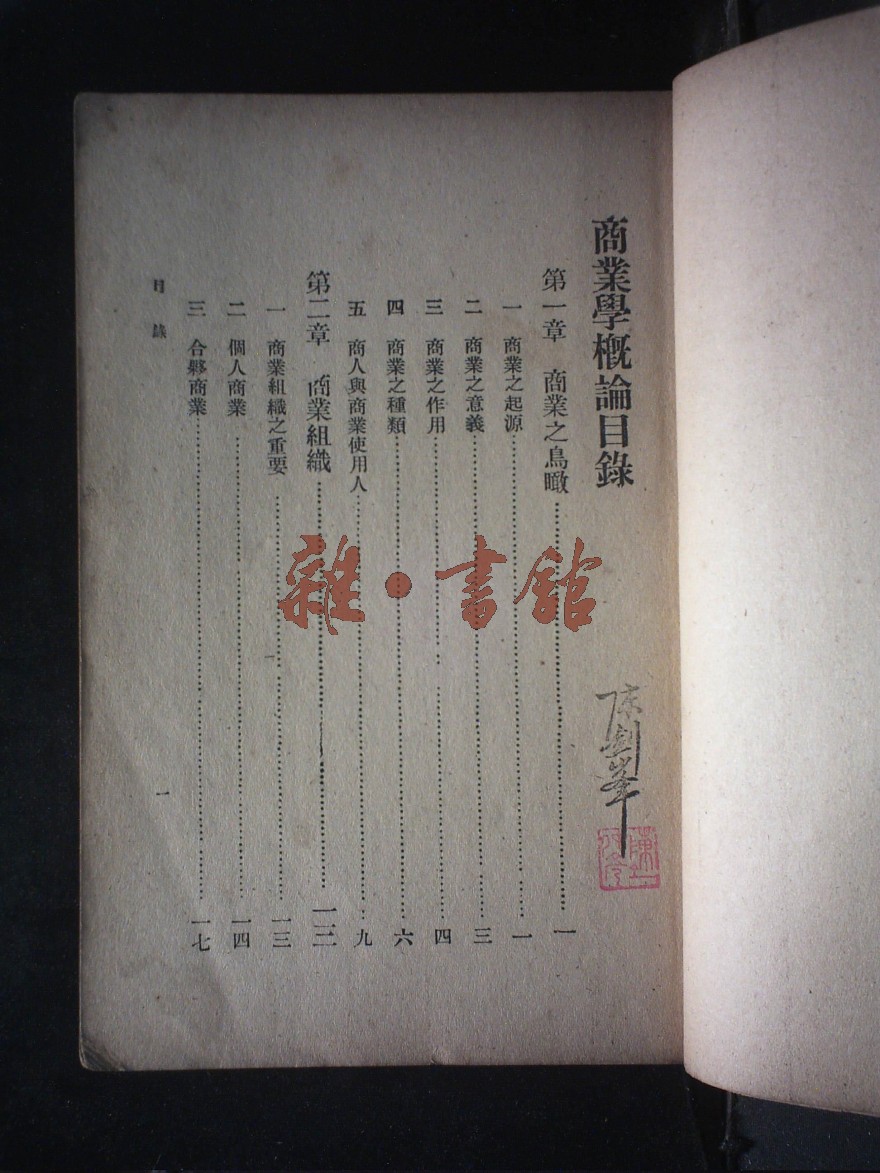 商業學概論目錄
第一章 商業之鳥瞰……一
一 商業之起源……一
二 商業之意義……三
三 商業之作用……四
四 商業之種類……六
五 商人與商業使用人……九
第二章 商業組織……一三
一 商業組織之重要……一三
二 個人商業……一四
三 合夥商業……一七
目錄
一
陳劍峯
雜·書館